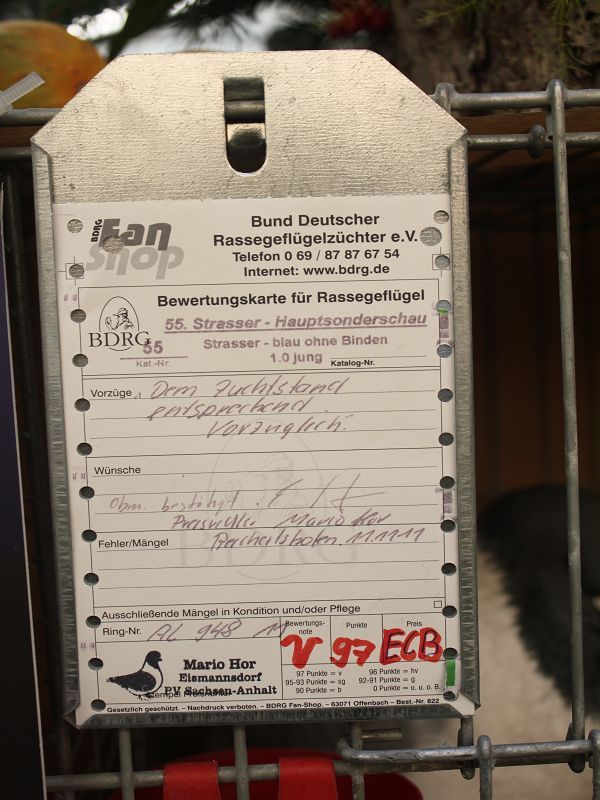 BDRG
Fan
Shop
Bund Deutscher
Rassegeflügelzüchter e.V.
Telefon 0 69 / 87 87 67 54
Internet: www.bdrg.de
Bewertungskarte für Rassegeflügel
BDRG
55. Strasser - Hauptsonderschau
55
Strasser - blau ohne Binden
Kat.-Nr.
1.0 jung
Katalog-Nr.
Vorzüge Dem Zuchtstand
entsprechend
Vorzüglich.
Wünsche
Obm. bestätigt
Preisrichter Mario Hor
Fehler/Mängel 11.11.11
BDRG
Ausschließende Mängel in Kondition und/oder Pflege
Ring-Nr. AL 948 11
Bewertungs-
note
Punkte
Preis
V 97 ECB
Mario Hor
Eismannsdorf
PV Sachsen-Anhalt
97 Punkte = v
96 Punkte = hv
95-93 Punkte = sg
92-91 Punkte = g
90 Punkte = b
0 Punkte = u. u. o. B.
Gesetzlich geschützt. – Nachdruck verboten. – BDRG Fan-Shop. – 63071 Offenbach – Best.-Nr. 822